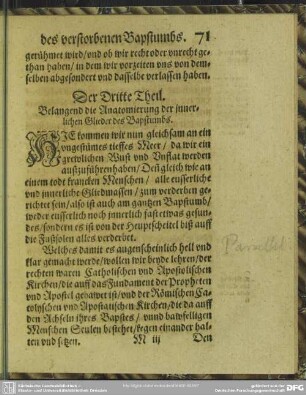 des verstorbenen Bapstumbs. 71
gerühmet wird / und ob wir recht oder unrecht ge-
than haben / in dem wir vorzeiten uns von dem-
selben abgesondert und dasselbe verlassen haben.
Der Dritte Theil.
Belangend die Anatomierung der inner-
lichen Glieder des Bapstumbs.
HIE kommen wir nun gleichsam an ein
ungestümes tieffes Meer / da wir ein
grewlichen Wust und Unflat werden
auszuführen haben / Deñ gleich wie an
einem todt krancken Menschen / alle eusserliche
und innerliche Gliedmassen / zum verderben ge-
richtet sein / also ist auch am gantzen Bapstumb /
weder eusserlich noch innerlich fast etwas gesun-
des / sondern es ist von der Heuptscheitel biß auff
die Fußsolen alles verderbet.
Welches damit es augenscheinlich hell und
klar gemacht werde / wollen wir beyde lehren / der
rechten waren Catholischen und Apostolischen
Kirchen / die auff das Fundament der Propheten
und Apostel gebawet ist / und der Römischen Ca-
tolyschen und Apostatischen Kirchen / die da auff
den Achseln ihres Bapstes / und bawfelligen
Menschen Seulen bestehet / kegen einander hal-
ten und setzen.
M iij Den
Parallel.